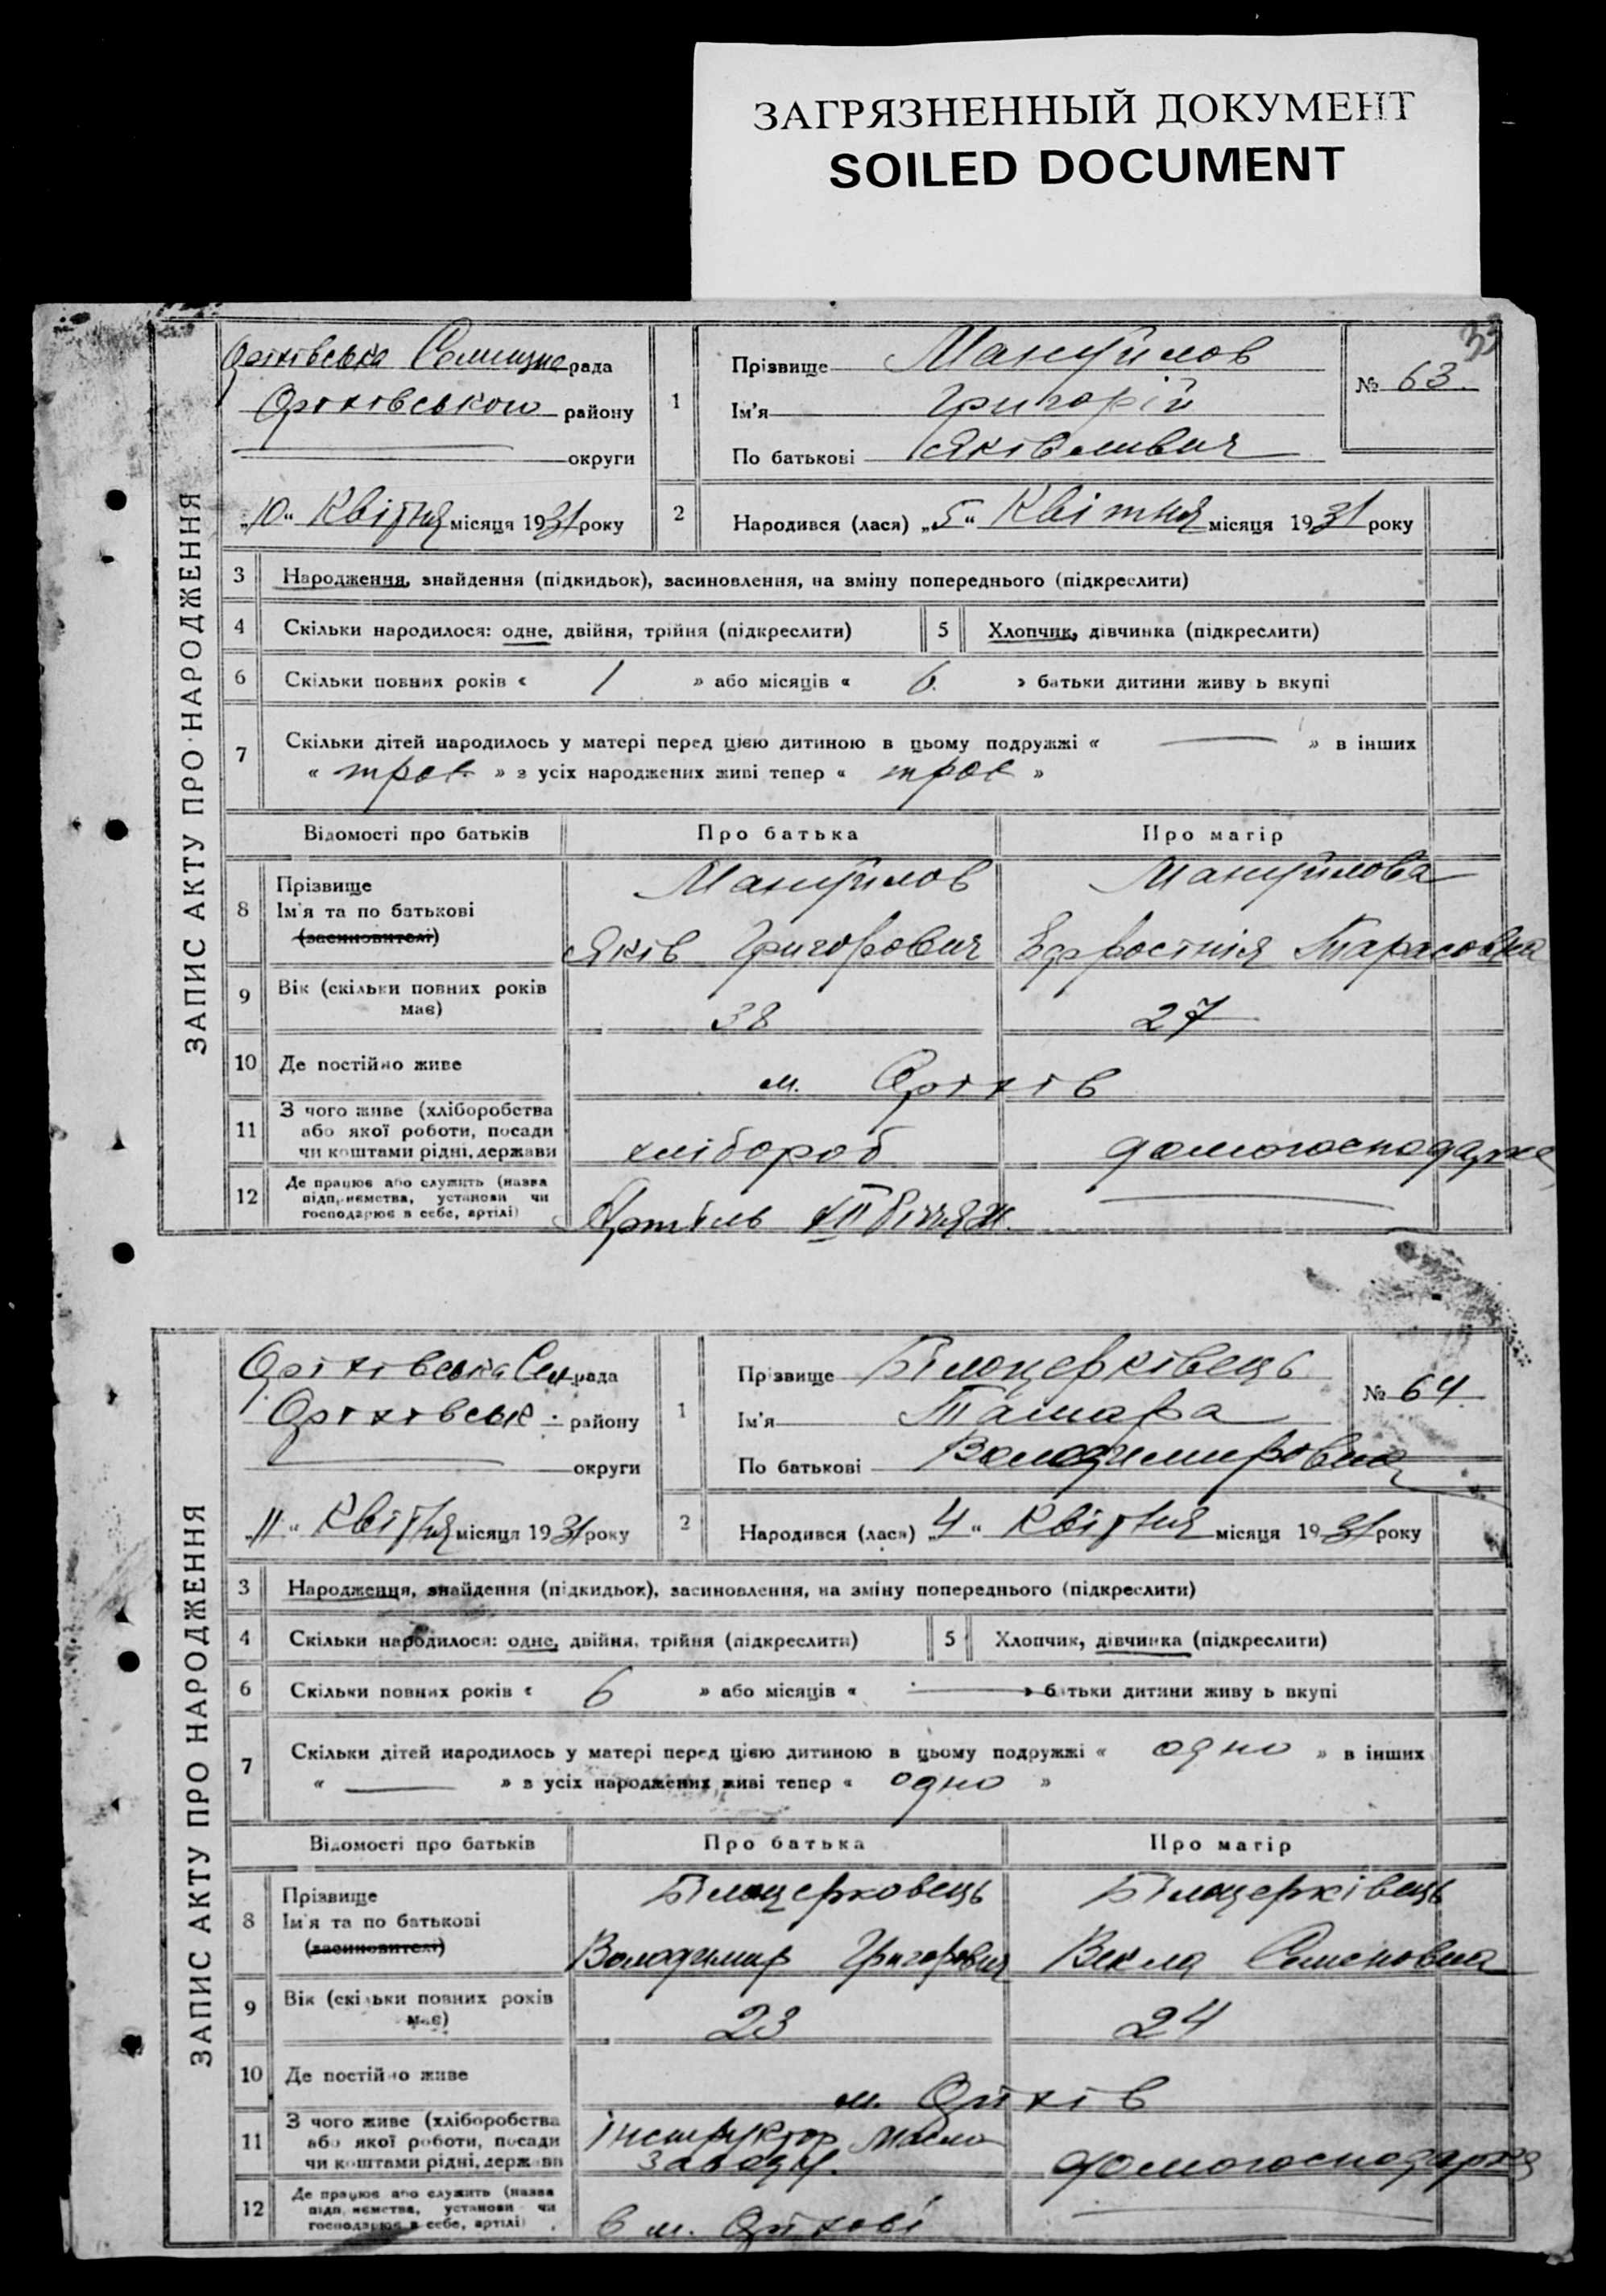 ЗАГРЯЗНЕННЫЙ ДОКУМЕНТ
SOILED DOCUMENT
33
ЗАПИС АКТУ ПРО НАРОДЖЕННЯ
Оріхівська Селищна рада
Оріхівського району
округи
„10“ Квітня місяця 1931 року
1
Прізвище Мануйлов
Ім'я Григорій
По батькові Яківливич
№ 63.
2
Народився (лася) „5“ Квітня місяця 1931 року
3 Народження, знайдення (підкидьок), засиновлення, на зміну попереднього (підкреслити)
4 Скільки народилося: одне, двійня, трійня (підкреслити) 5 Хлопчик, дівчинка (підкреслити)
6 Скільки повних років « 1 » або місяців « 6. » батьки дитини живу ь вкупі
7 Скільки дітей народилось у матері перед цією дитиною в цьому подружжі « — » в інших
« троє » з усіх народжених живі тепер « троє »
Відомості про батьків Про батька Про матір
8 Прізвище Мануйлов Мануйлова
Ім'я та по батькові
(засиновителі) Яків Григорович Ефросінія Тарасовна
9 Вік (скільки повних років має) 38 27
10 Де постійно живе м. Оріхів
11 З чого живе (хліборобства
або якої роботи, посади
чи коштами рідні, держави хлібороб домогосподарка
12 Де працює або служить (назва
підприємства, установи чи
господарює в себе, артілі) Артіль —
ЗАПИС АКТУ ПРО НАРОДЖЕННЯ
Оріхівська Сел. рада
Оріхівськ. району
округи
„11“ Квітня місяця 1931 року
1
Прізвище Білоцерківець
Ім'я Тамара
По батькові Володимировна
№ 64.
2
Народився (лася) „4“ Квітня місяця 1931 року
3 Народження, знайдення (підкидьок), засиновлення, на зміну попереднього (підкреслити)
4 Скільки народилося: одне, двійня, трійня (підкреслити) 5 Хлопчик, дівчинка (підкреслити)
6 Скільки повних років « 6 » або місяців « — » батьки дитини живу ь вкупі
7 Скільки дітей народилось у матері перед цією дитиною в цьому подружжі « одно » в інших
« — » з усіх народжених живі тепер « одно »
Відомості про батьків Про батька Про матір
8 Прізвище Білоцерковець Білоцерківець
Ім'я та по батькові
(засиновителі) Володимир Григорович Векла Семеновна
9 Вік (скільки повних років має) 23 24
10 Де постійно живе м. Оріхів
11 З чого живе (хліборобства
або якої роботи, посади
чи коштами рідні, держави Інструктор Масло заводу. домогосподарка
12 Де працює або служить (назва
підприємства, установи чи
господарює в себе, артілі) в м. Оріхові —